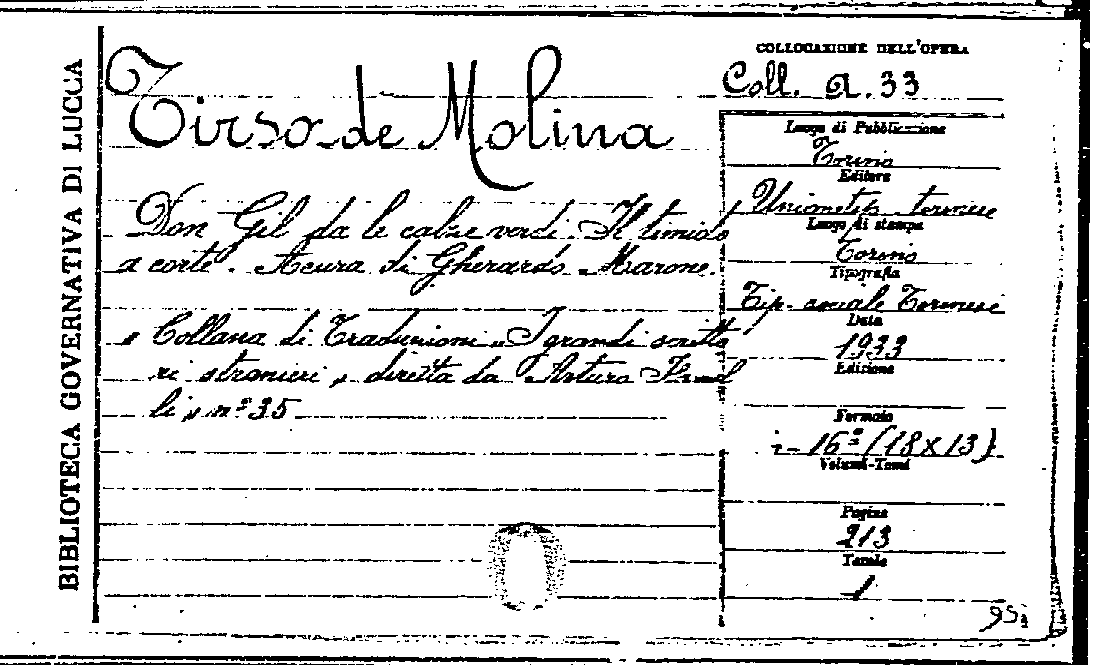 BIBLIOTECA GOVERNATIVA DI LUCCA
Tirso de Molina
Don Gil da le calze verdi. Il timido
a corte. A cura di Gherardo Marone.
« Collana di Traduzioni « I grandi scritto
ri stranieri », diretta da Arturo
li » n° 35
COLLOCAZIONE DELL'OPERA
Coll. A. 33
Luogo di Pubblicazione
Torino
Editore
Torinese
Luogo di stampa
Torino
Tipografia
Tip. sociale Torinese
Data
1933
Edizione
Formato
i- 16° (18x13)
Volumi-Tomi
Pagine
213
Tavole
1